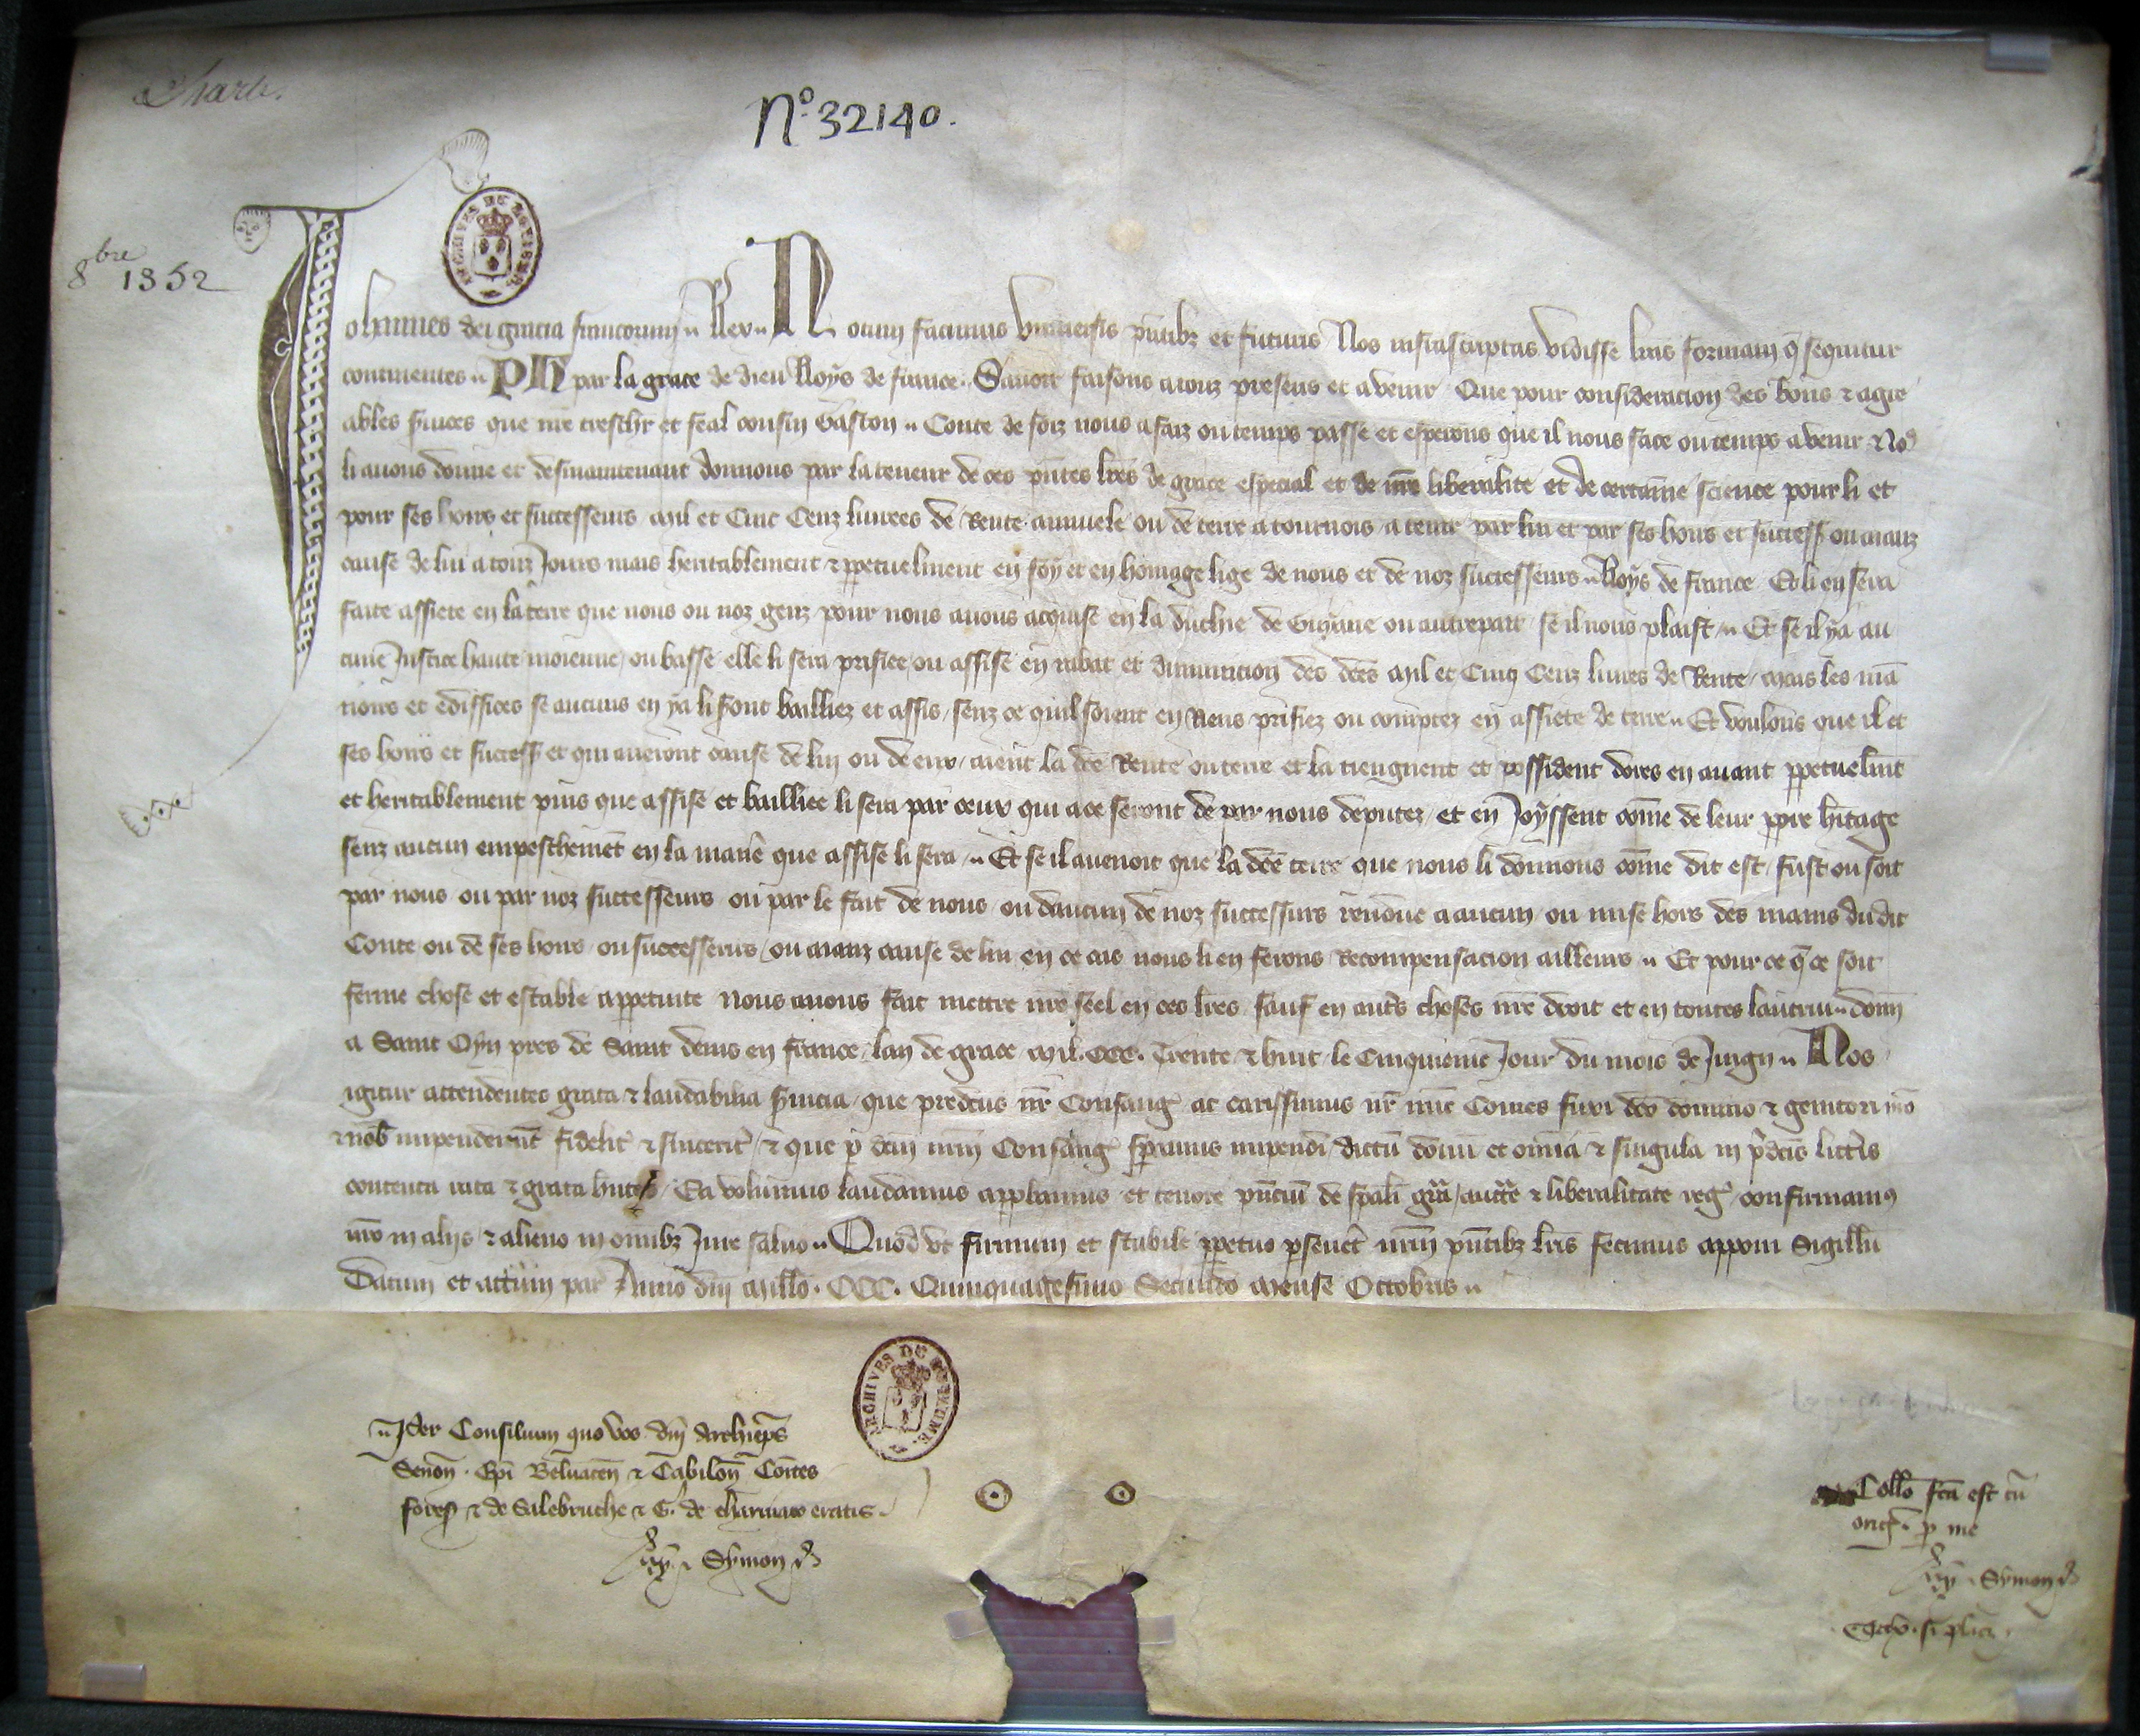 Charte.
N.º 32140.
8bre 1352
ARCHIVES DU ROYAUME
Johannes dei gracia francorum Rex Notum facimus Universis pñtibz et futuris Nos infrascriptas vidisse lras formam q̃ sequitur
continentes PH par la grace de dieu Roys de france Savoir faisons a touz presens et avenir Que pour consideracion des bons et agre
ables svices que nre treschr et feal cousin Gaston Conte de foiz nous a faiz ou temps passe et esperons que il nous face ou temps avenir Nos
li avons donne et desmaintenant donnons par la teneur de ces pntes lres de grace especial et de nre liberalite et de certaine science pour li et
pour ses hoirs et successeurs Mil et Cinc Cenz livrees de Rente annuele ou de terre a tournois a tenir par lui et par ses hoirs et success ou aianz
cause de lui a touz Jours mais heritablement et ppetuelment en foy et en homage lige de nous et de noz successeurs Roys de france Et li en sera
faite assiete en la terre que nous ou noz genz pour nous avons acquise en la duchie de Guyane ou autrepart se il nous plaist Et se il y a au
cune Justice haute moienne ou basse elle li sera prisiee ou assise en rabat et diminucion des des Mil et Cinq Cenz livres de Rente mais les ma
noirs et ediffices se aucuns en y a li seront bailliez et assis senz ce quil soient en Riens prisiez ou comptez en assiete de terre Et voulons que il et
ses hoirs et success et qui averont cause de lui ou de eux aient la dce Rente ou terre et la tiengnent et possident dores en avant ppetuelmt
et heritablement puis que assise et bailliee li sera par ceux qui a ce seront de par nous deputez et en Joyssent come de leur ppre hitage
senz aucun empeschemet en la manie que assise li sera Et se il avenoit que la dce terre que nous li donnons come dit est fust ou soit
par nous ou par noz successeurs ou par le fait de nous ou daucun de noz successeurs rendue a aucun ou mise hors des mains dudit
Conte ou de ses hoirs ou successeurs ou aianz cause de lui en ce cas nous li en ferons Recompensacion ailleurs Et pour ce q̃ ce soit
ferme chose et estable a ppetuite Nous avons fait mettre nre seel en ces lres sauf en autes choses nre droit et en toutes lautrui donn
a Saint Oyn pres de Saint denis en france lan de grace Mil. CCC. Trente et huit le Cinquieme Jour du mois de Juign Nos
igitur attendentes grata et laudabilia svicia que predcus nr Consang ac carissimus nr nunc Comes fuxi dco domino et genitori nro
et nob impenderunt fidelit et sincerit et que p dcm nrm Consang speramus impendi dictu donu et omia et singula in pdcis litteris
contenta rata et grata hntes Ea volumus laudamus approbamus et tenore pntium de spali gra auctte et liberalitate reg confirmamus
nro in aliis et alieno in omibz Jure salvo Quod ut firmum et stabile ppetuo pseveret nrm pntibz lris fecimus apponi Sigillu
Datum et actum par Anno dni Millo. CCC. Quinquagesimo Secundo Mense Octobris
ARCHIVES DU ROYAUME
Per Consilium quo vos dni Archieps
Senon. Epi Belvacen et Cabilon Comtes
fores et de Salebruche et G. de Charniaco eratis.
Symon
Collo fca est cu
orig. p me
Symon